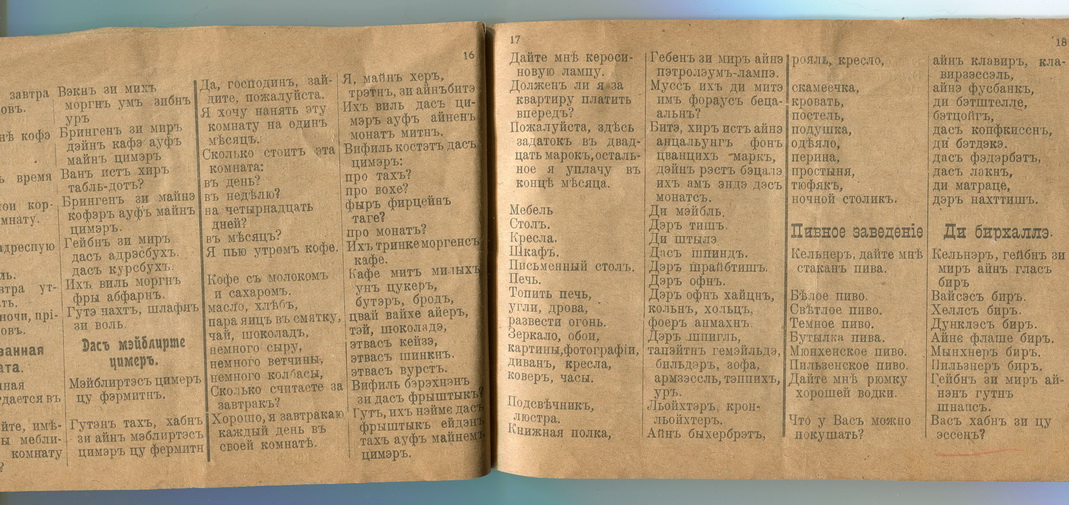 16
завтра
овъ.
нѣ кофэ
ъ время
кор-
мнату.
адресную
ль.
втра ут-
ть.
ночи, прі-
ровъ.
ванная
ата.
ная
дается въ
йте, имѣ-
ы мебли-
комнату
?
Вэкнъ зи михъ
моргнъ умъ зибнъ
уръ
Брингенъ зи миръ
дэйнъ кафэ ауфъ
майнъ цимэръ
Ванъ истъ хиръ
табль-дотъ?
Брингенъ зи майнэ
кофэръ ауфъ майнъ
цимэръ.
Гейбнъ зи миръ
дасъ адрэсбухъ.
дасъ курсбухъ.
Ихъ виль моргнъ
фры абфарнъ.
Гутэ нахтъ, шлафнъ
зи воль.
Dасъ мэйблирте
цимеръ.
Мэйблиртэсъ цимеръ
цу фэрмитнъ.
Гутэнъ тахъ, хабнъ
зи айнъ мэблиртэсъ
цимэръ цу фермитн
Да, господинъ, зай-
дите, пожалуйста.
Я хочу нанять эту
комнату на одинъ
мѣсяцъ.
Сколько стоитъ эта
комната:
въ день?
въ недѣлю?
на четырнадцать
дней?
въ мѣсяцъ?
Я пью утромъ кофе.
Кофе съ молокомъ
и сахаромъ.
масло, хлѣбъ,
пара яицъ въ смятку,
чай, шоколадъ,
немного сыру,
немного ветчины,
немного колбасы,
Сколько считаете за
завтракъ?
Хорошо, я завтракаю
каждый день въ
своей комнатѣ.
Я, майнъ херъ,
трэтнъ, зи айнъбитэ
Ихъ виль дасъ ци-
мэръ ауфъ айненъ
монатъ митнъ.
Вифиль костэтъ дасъ
цимэръ:
про тахъ?
про вохе?
фыръ фирцейнъ
таге?
про монатъ?
Ихъ тринке моргенсъ
кафе.
Кафе митъ милыхъ
унъ цукеръ,
бутэръ, бродъ,
цвай вайхе айеръ,
тэй, шоколадэ,
этвасъ кейзэ,
этвасъ шинкнъ.
этвасъ вурстъ.
Вифиль бэрэхнэнъ
зи дасъ фрыштыкъ?
Гутъ, ихъ нэймe дасъ
фрыштыкъ ейдэнъ
тахъ ауфъ майнемъ
цимэръ.
17
Дайте мнѣ кероси-
новую лампу.
Долженъ ли я за
квартиру платить
впередъ?
Пожалуйста, здѣсь
задатокъ въ двад-
цать марокъ, осталь-
ное я уплачу въ
концѣ мѣсяца.
Мебель
Столъ.
Кресла.
Шкафъ.
Письменный столъ.
Печь.
Топить печь,
угли, дрова,
развести огонь.
Зеркало, обои,
картины, фотографіи,
диванъ, кресла,
коверъ, часы.
Подсвѣчникъ,
люстра.
Книжная полка,
Гебенъ зи миръ айнэ
пэтролэумъ-лампэ.
Муссъ ихъ ди митэ
имъ фораусъ беца-
альнъ?
Битэ, хиръ истъ айнэ
анцальунгъ фонъ
цванцихъ маркъ,
дэйнъ рэстъ бэцалэ
ихъ амъ эндэ дэсъ
монатсъ.
Ди мэйбль,
Дэръ тишъ.
Ди штылэ
Дасъ шпиндъ.
Дэръ шрайбтишъ.
Дэръ офнъ.
Дэръ офнъ хайцнъ,
кольнъ, хольцъ,
фоеръ анмахнъ.
Дэръ шпигль,
тапэйтнъ гемэйльдэ,
бильдэръ, зофа,
армзэссль, тэппихъ,
уръ.
Льойхтэръ, крон-
льойхтеръ.
Айнъ быхербрэтъ,
18
рояль, кресло,
скамеечка,
кровать,
постель,
подушка,
одѣяло,
перина,
простыня,
тюфякъ,
ночной столикъ.
Пивное заведеніе
Кельнеръ, дайте мнѣ
стаканъ пива.
Бѣлое пиво.
Свѣтлое пиво.
Темное пиво.
Бутылка пива.
Мюнхенское пиво.
Пильзенское пиво.
Дайте мнѣ рюмку
хорошей водки.
Что у Васъ можно
покушать?
айнъ клавиръ, кла-
вирзэссэль,
айнэ фусбанкъ,
ди бэтштелле,
бэтцойгъ,
дасъ копфкисснъ,
ди бэтдэкэ.
дасъ фэдэрбэтъ,
дасъ лакнъ,
ди матраце,
дэръ нахттишъ.
Ди бирхаллэ.
Кельнэръ, гейбнъ зи
миръ айнъ гласъ
биръ
Вайсэсъ биръ.
Хеллсъ биръ.
Дунклэсъ биръ.
Айнe флаше биръ.
Мынхнеръ биръ.
Пильзнеръ биръ.
Гейбнъ зи миръ ай-
нэнъ гутнъ
шнапсъ.
Васъ хабнъ зи цу
эссенъ?